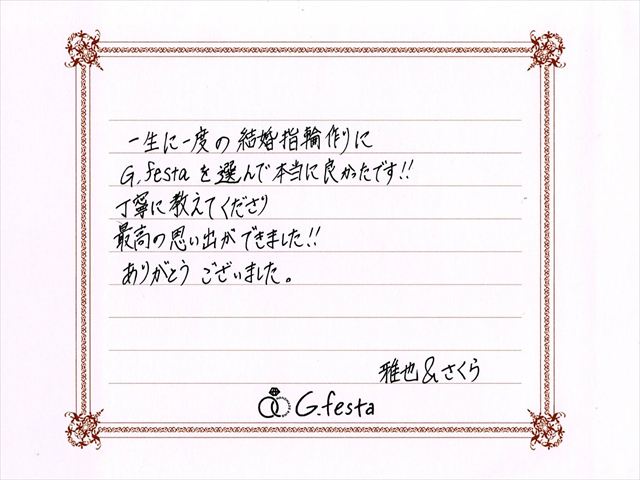 一生に一度の結婚指輪作りに
G.festaを選んで本当に良かったです!!
丁寧に教えてくださり
最高の思い出ができました!!
ありがとうございました。
雅也&さくら
G.festa